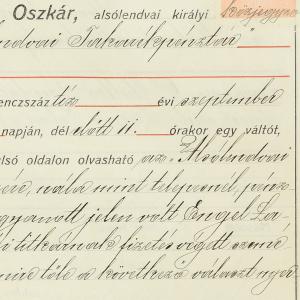 Oszkár, alsólendvai királyi közjegyző
ndvai Takarékpénztár"
enczszáz tíz évi szeptember
napján, dél előtt 11. órakor egy váltót,
ulsó oldalon olvasható az "Alsólendvai
mint telepesnél, pénz
ugyanott jelen volt Engel La
titkárnak fizetés végett
tőle a következő választ nyer